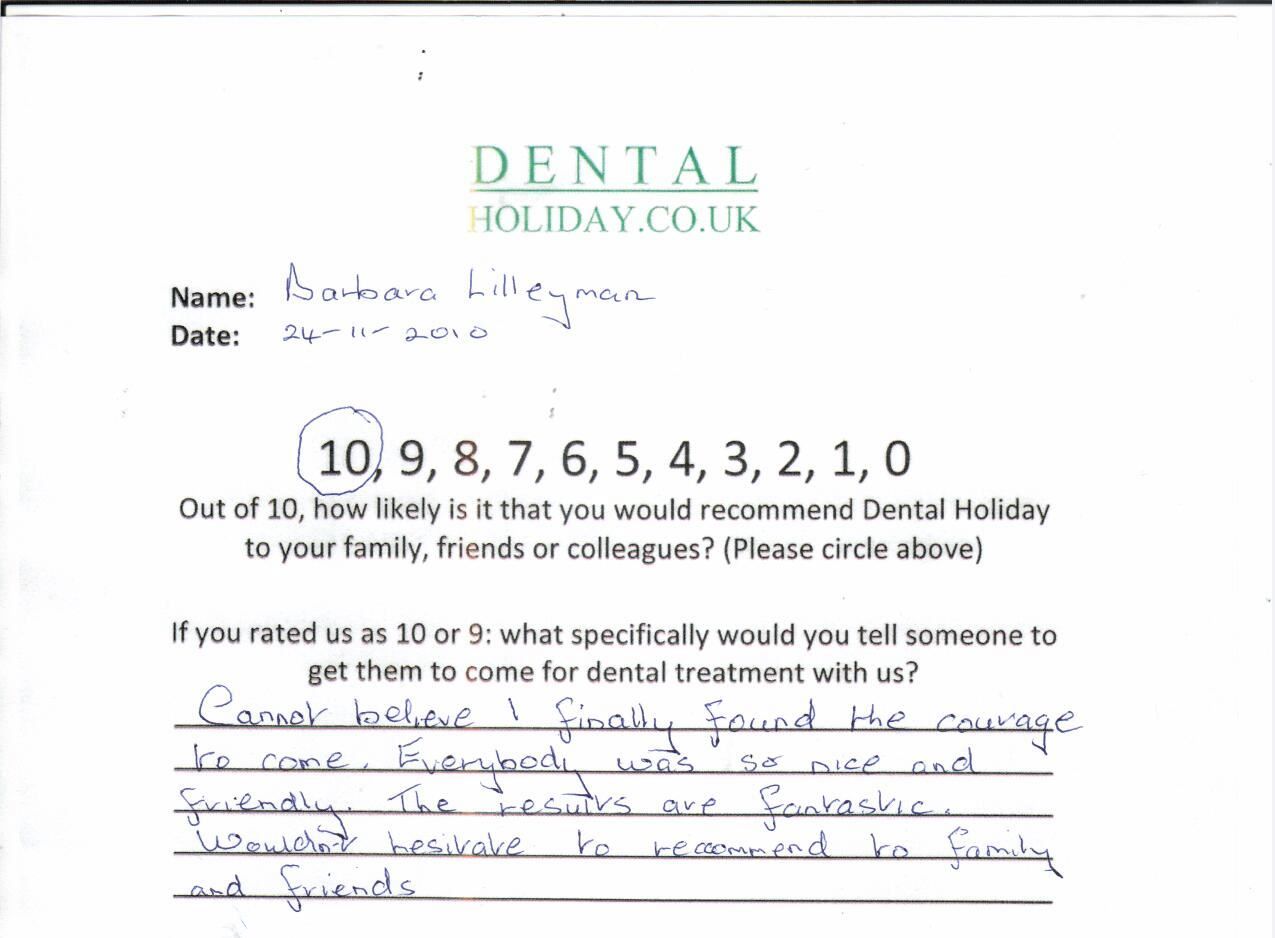 DENTAL
HOLIDAY.CO.UK
Name: Barbara Lilleyman
Date: 24-11-2010
10, 9, 8, 7, 6, 5, 4, 3, 2, 1, 0
Out of 10, how likely is it that you would recommend Dental Holiday
to your family, friends or colleagues? (Please circle above)
If you rated us as 10 or 9: what specifically would you tell someone to
get them to come for dental treatment with us?
Cannot believe I finally found the courage
to come. Everybody was so nice and
friendly. The results are fantastic.
Wouldn't hesitate to recommend to family
and friends